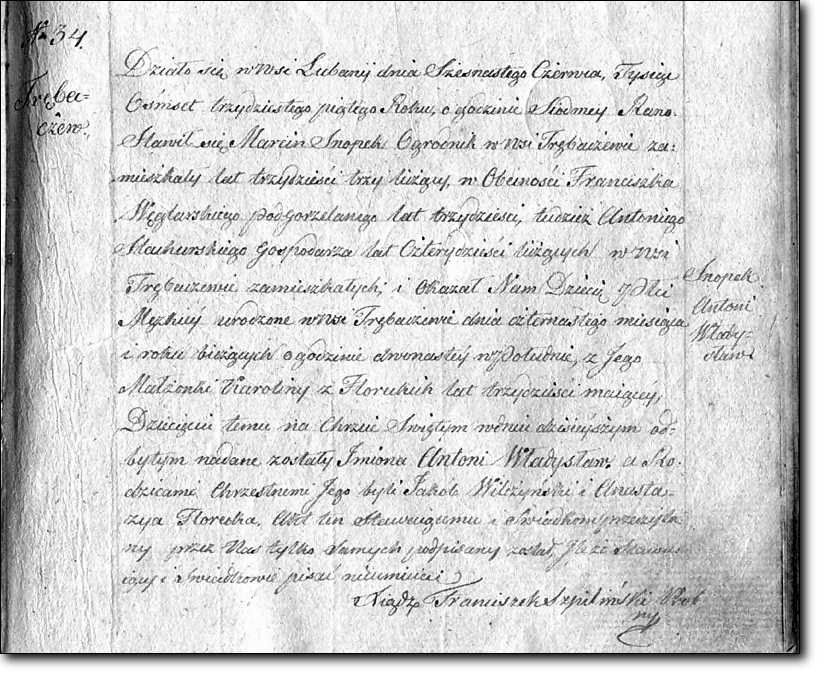 No 34.
Tręba-
czew.
Działo się w Wsi Lubanij dnia Szesnastego Czerwca, Tysiąc
Ośmset trzydziestego piątego Roku, o godzinie Siodmey Rano.
Stawił się Marcin Snopek Ogrodnik w Wsi Trębaczewie za-
mieszkały lat trzydzieści trzy liżący, w Obecności Franciszka
Węglarskiego podgorzelanego lat trzydzieści, tudzież Antoniego
Stachurskiego Gospodarza lat Czterydzieści liżących w Wsi
Trębaczewie zamieszkałych; i Okazał Nam Dziecię Płci
Męzkiey urodzone w Wsi Trębaczewie dnia czternastego miesiąca
i roku bieżących o godzinie dwonastey w Południe, z Jego
Małżonki Karoliny z Floreckich lat trzydzieści maiącey,
Dziecięciu temu na Chrzcie Swiętym w dniu dzisieyszym od-
bytym nadane zostały Imiona Antoni Władysław. a Ro-
dzicami Chrzestnemi Jego byli Jakób Wilczyński i Anasta-
zya Florecka. Akt ten Stawaiącemu i Swiadkom przeczyta-
ny przez Nas tylko Samych podpisany został, Ile że Stawa-
iący i Swiadkowie pisać nieumieią
Xiądz Franciszek Szpiliński Prob
ny
Snopek
Antoni
Włady-
sław